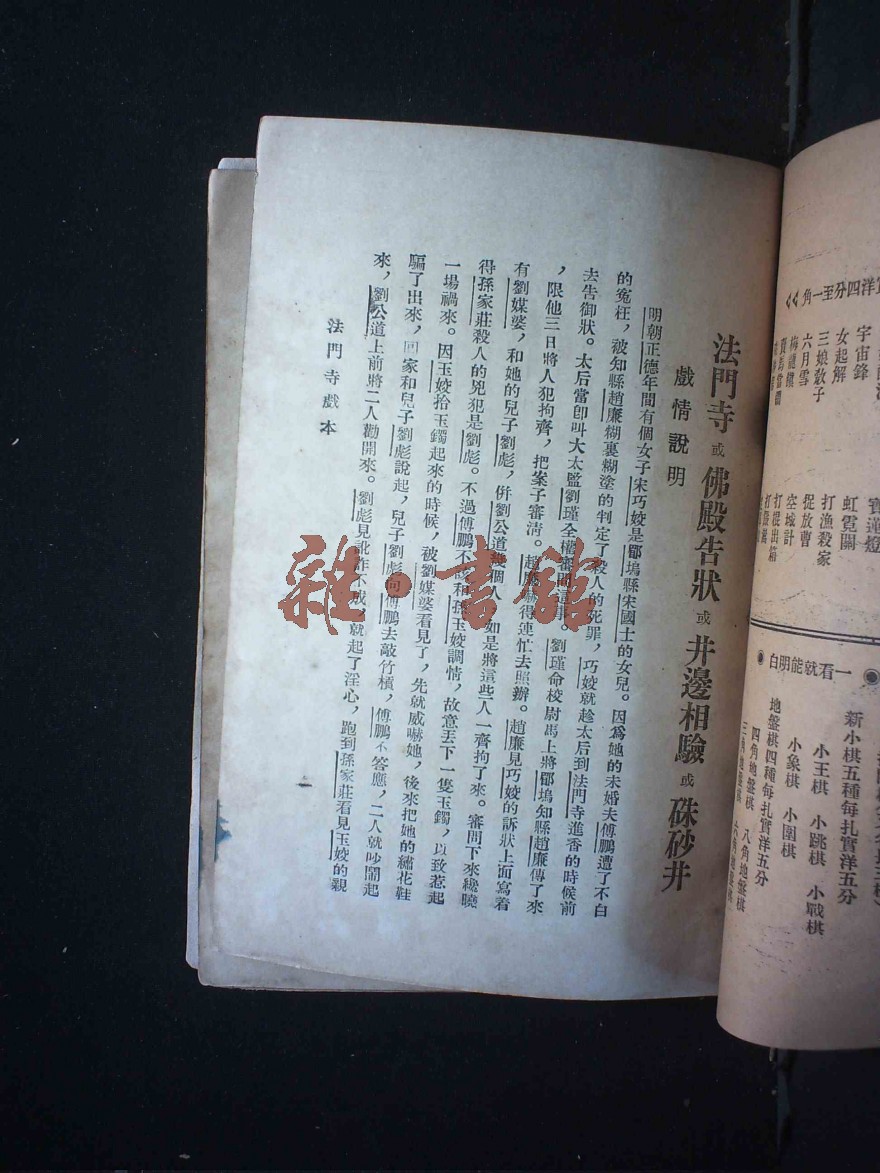 法門寺或佛殿告狀或井邊相驗或硃砂井
戲情說明
明朝正德年間有個女子宋巧姣是郿塢縣宋國士的女兒。因爲她的未婚夫傅鵬遭了不白
的冤枉，被知縣趙廉糊裏糊塗的判定了殺人的死罪，巧姣就趁太后到法門寺進香的時候前
去告御狀。太后當卽叫大太監劉瑾全權審問這事。劉瑾命校尉馬上將郿塢知縣趙廉傳了來
，限他三日將人犯拘齊，把案子審淸。趙廉得連忙去照辦。趙廉見巧姣的訴狀上面寫着
有劉媒婆，和她的兒子劉彪，倂劉公道幾個人，如是將這些人一齊拘了來。審問下來纔曉
得孫家莊殺人的兇犯是劉彪。不過傅鵬不該和孫玉姣調情，故意丟下一隻玉鐲，以致惹起
一場禍來。因玉姣拾玉鐲起來的時候，被劉媒婆看見了，先就威嚇她，後來把她的繡花鞋
騙了出來，回家和兒子劉彪說起，兒子劉彪向傅鵬去敲竹槓，傅鵬不答應，二人就吵鬧起
來，劉公道上前將二人勸開來。劉彪見訛詐不成，就起了淫心，跑到孫家莊看見玉姣的親
法門寺戲本
洋四分至一角
宇宙鋒
女起解
三娘敎子
六月雪
寶蓮燈
虹霓關
打漁殺家
捉放曹
空城計
打棍出箱
一看就能明白
新小棋五種每扎實洋五分
小王棋 小跳棋 小戰棋
小象棋 小圍棋
地盤棋四種每扎實洋五分
四角地盤棋 八角地盤棋
三角地盤棋
雜·書館